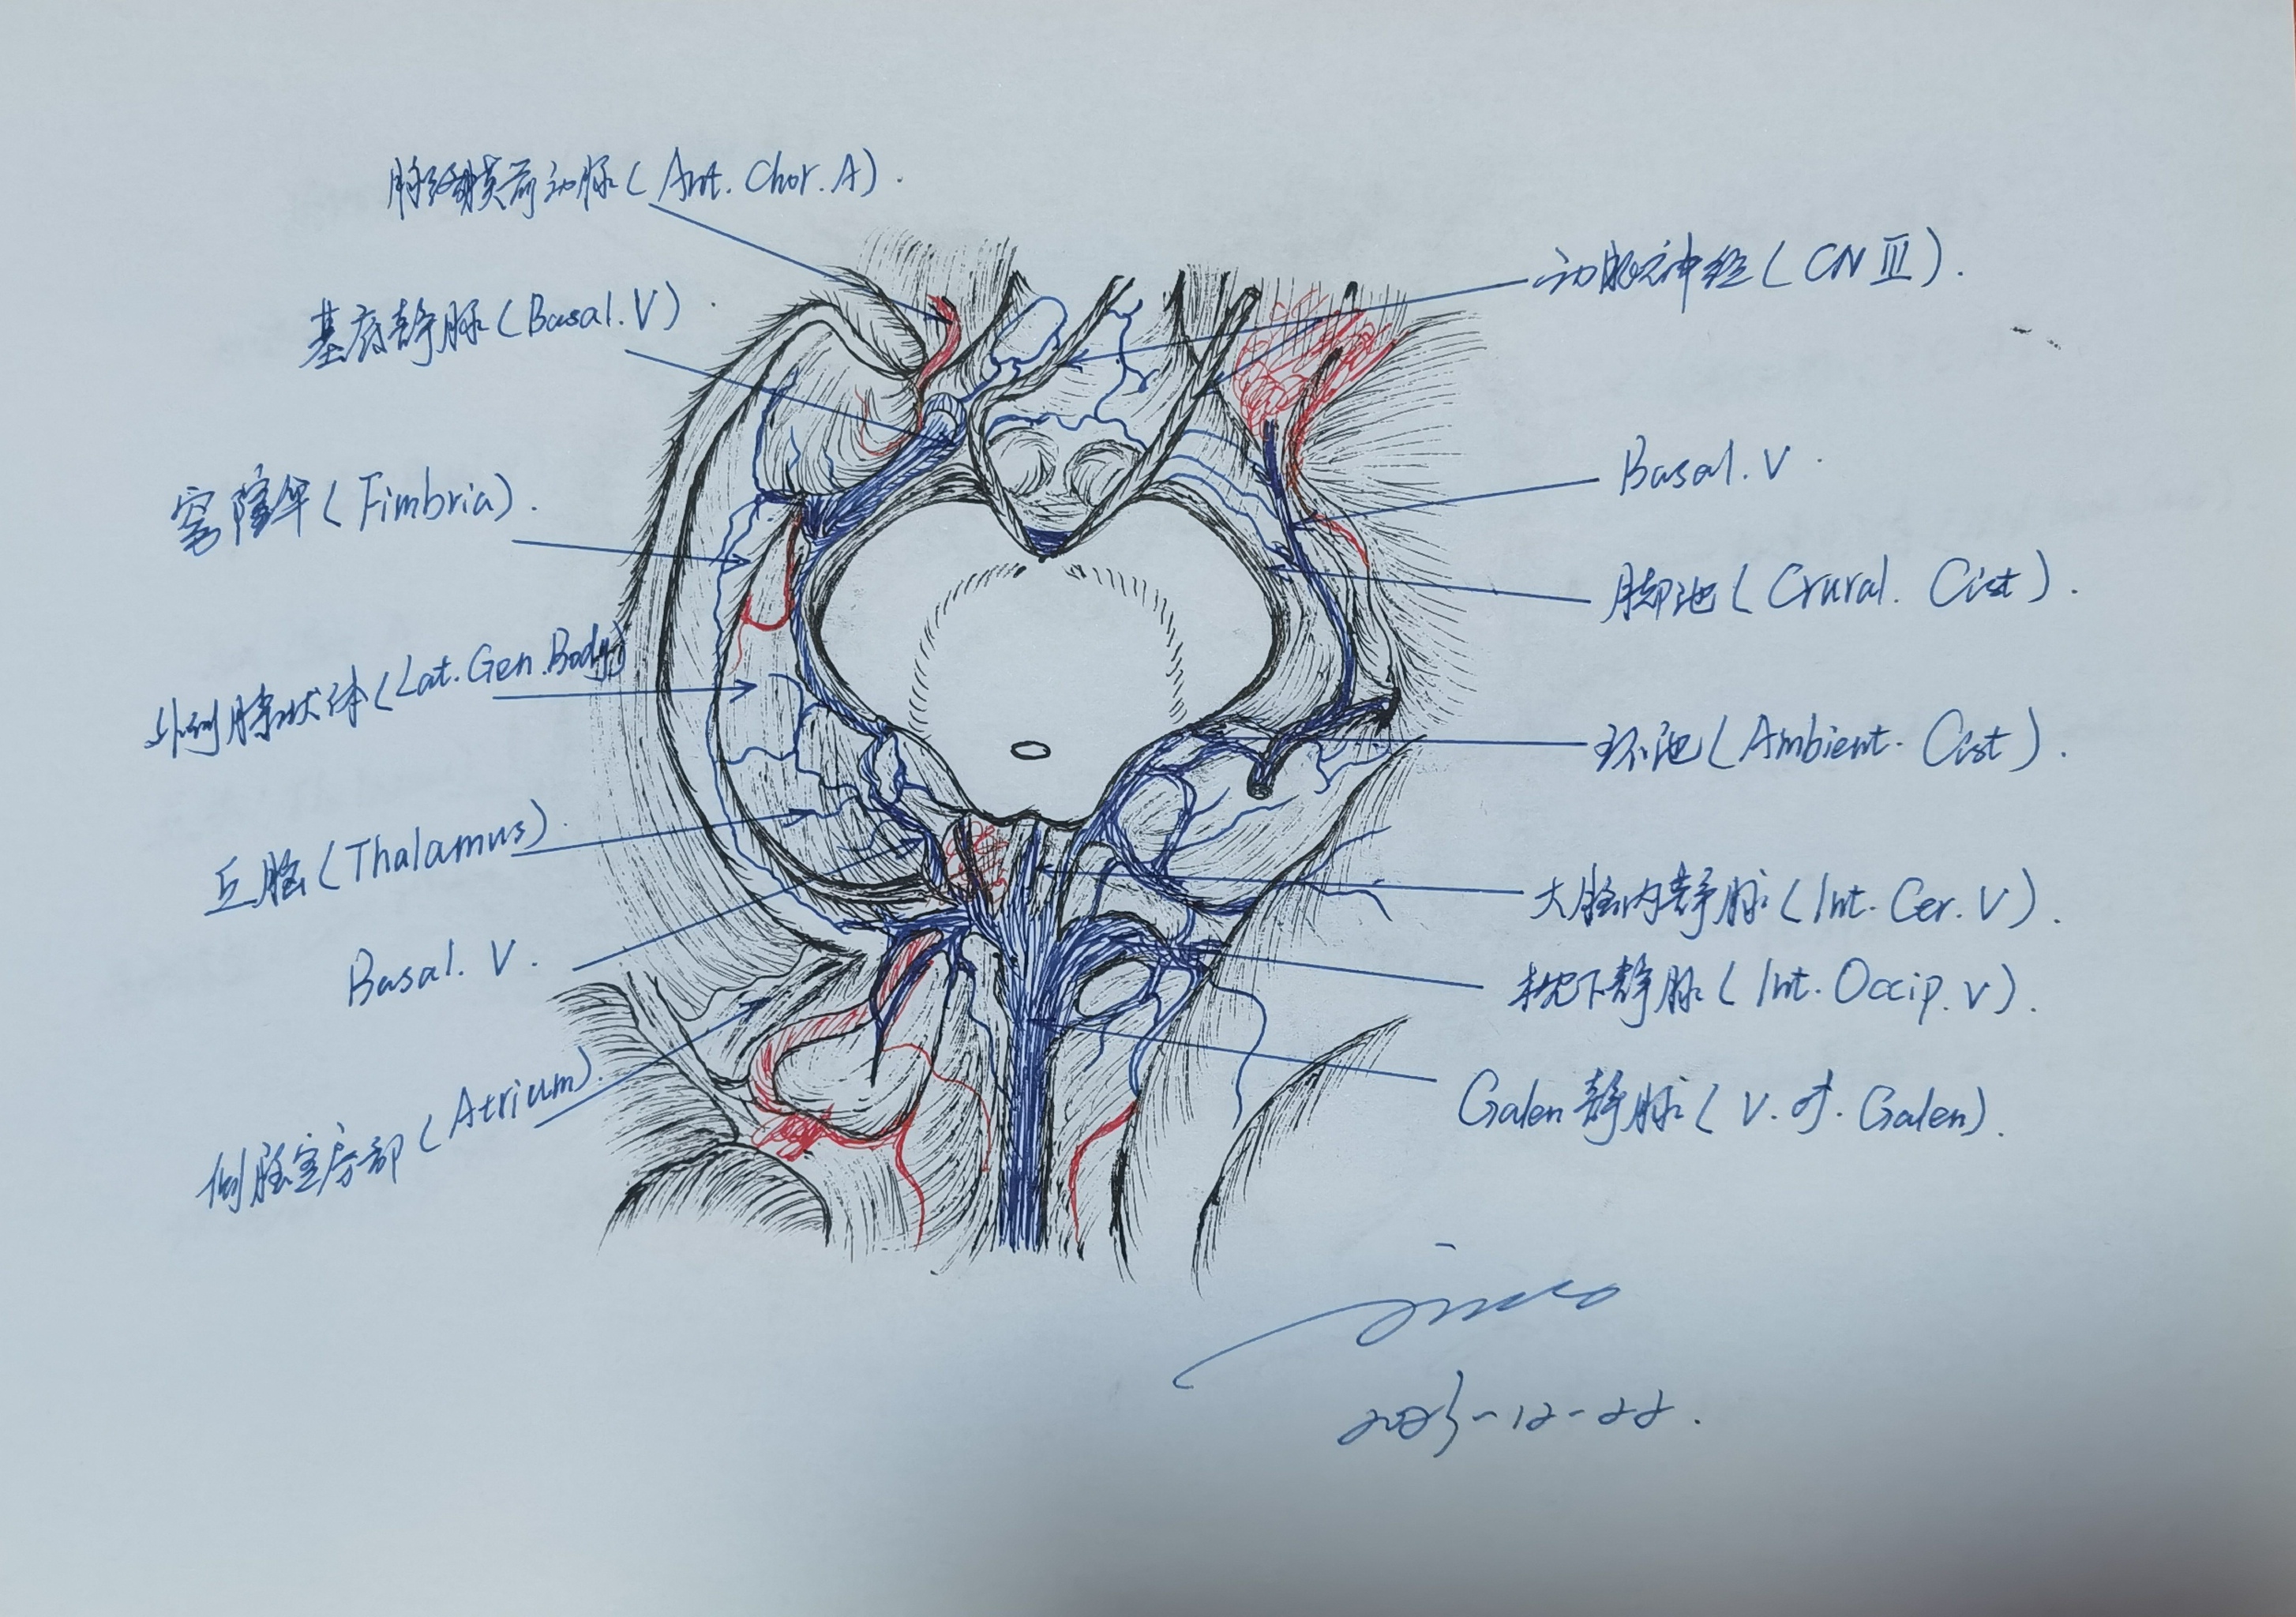 脉络膜前动脉(Ant. Chor. A).
基底静脉(Basal. V)
穹窿伞(Fimbria).
外侧膝状体(Lat. Gen. Body)
丘脑(Thalamus).
Basal. V.
侧脑室房部(Atrium).
动眼神经(CN III).
Basal. V
脚池(Crural. Cist).
环池(Ambient. Cist).
大脑内静脉(Int. Cer. V).
枕下静脉(Int. Occip. V).
Galen静脉(V. of. Galen).
2023-12-22.